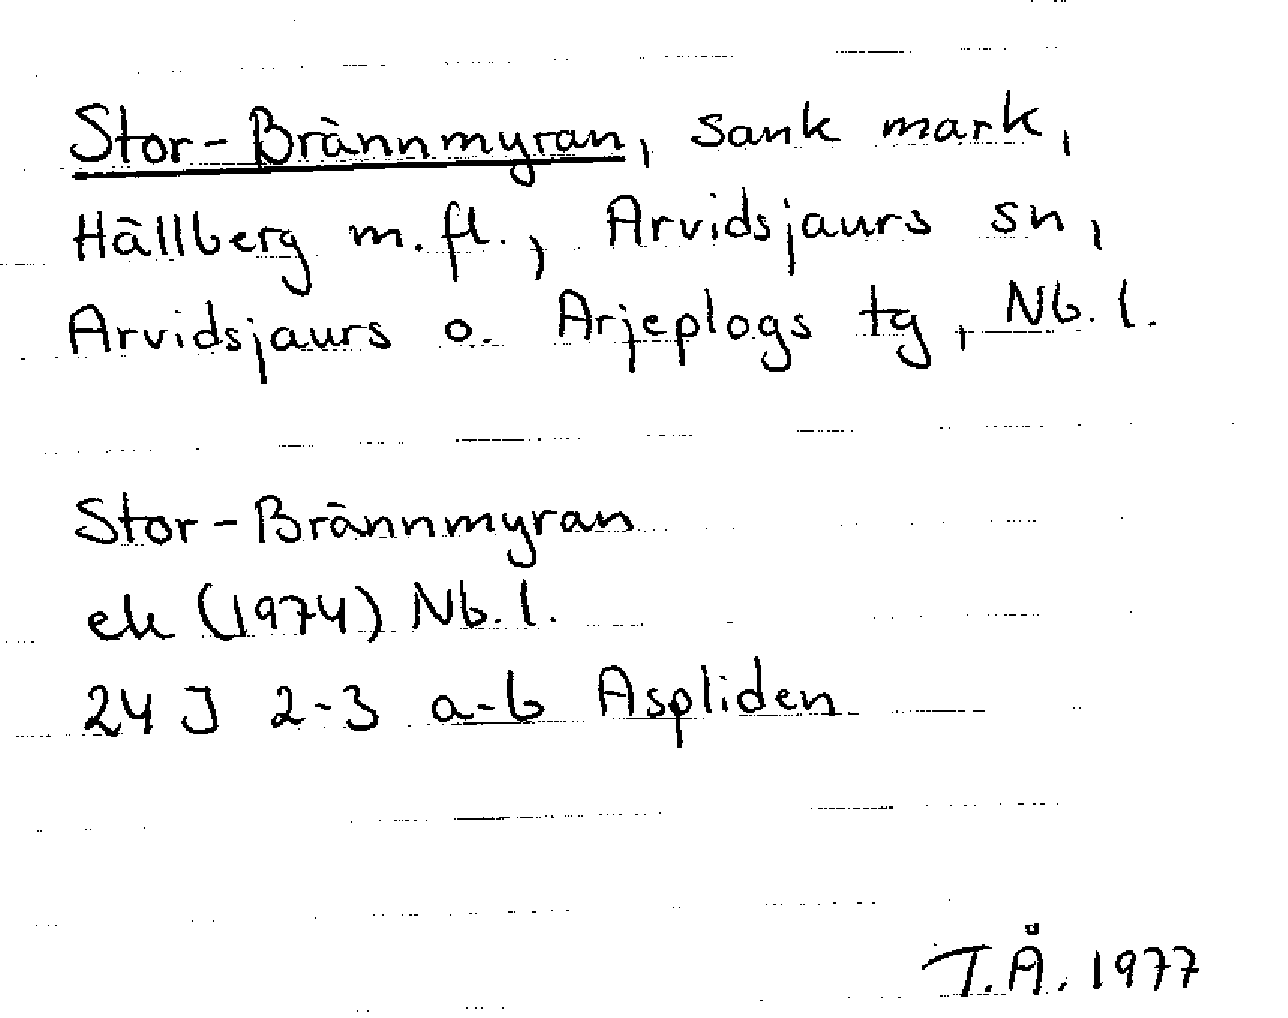 Stor-Brännmyran, sank mark,
Hällberg m.fl., Arvidsjaurs sn,
Arvidsjaurs o. Arjeplogs tg, Nb. l.
Stor-Brännmyran
ek (1974) Nb. l.
24 J 2-3 a-b Aspliden
T.Å. 1977